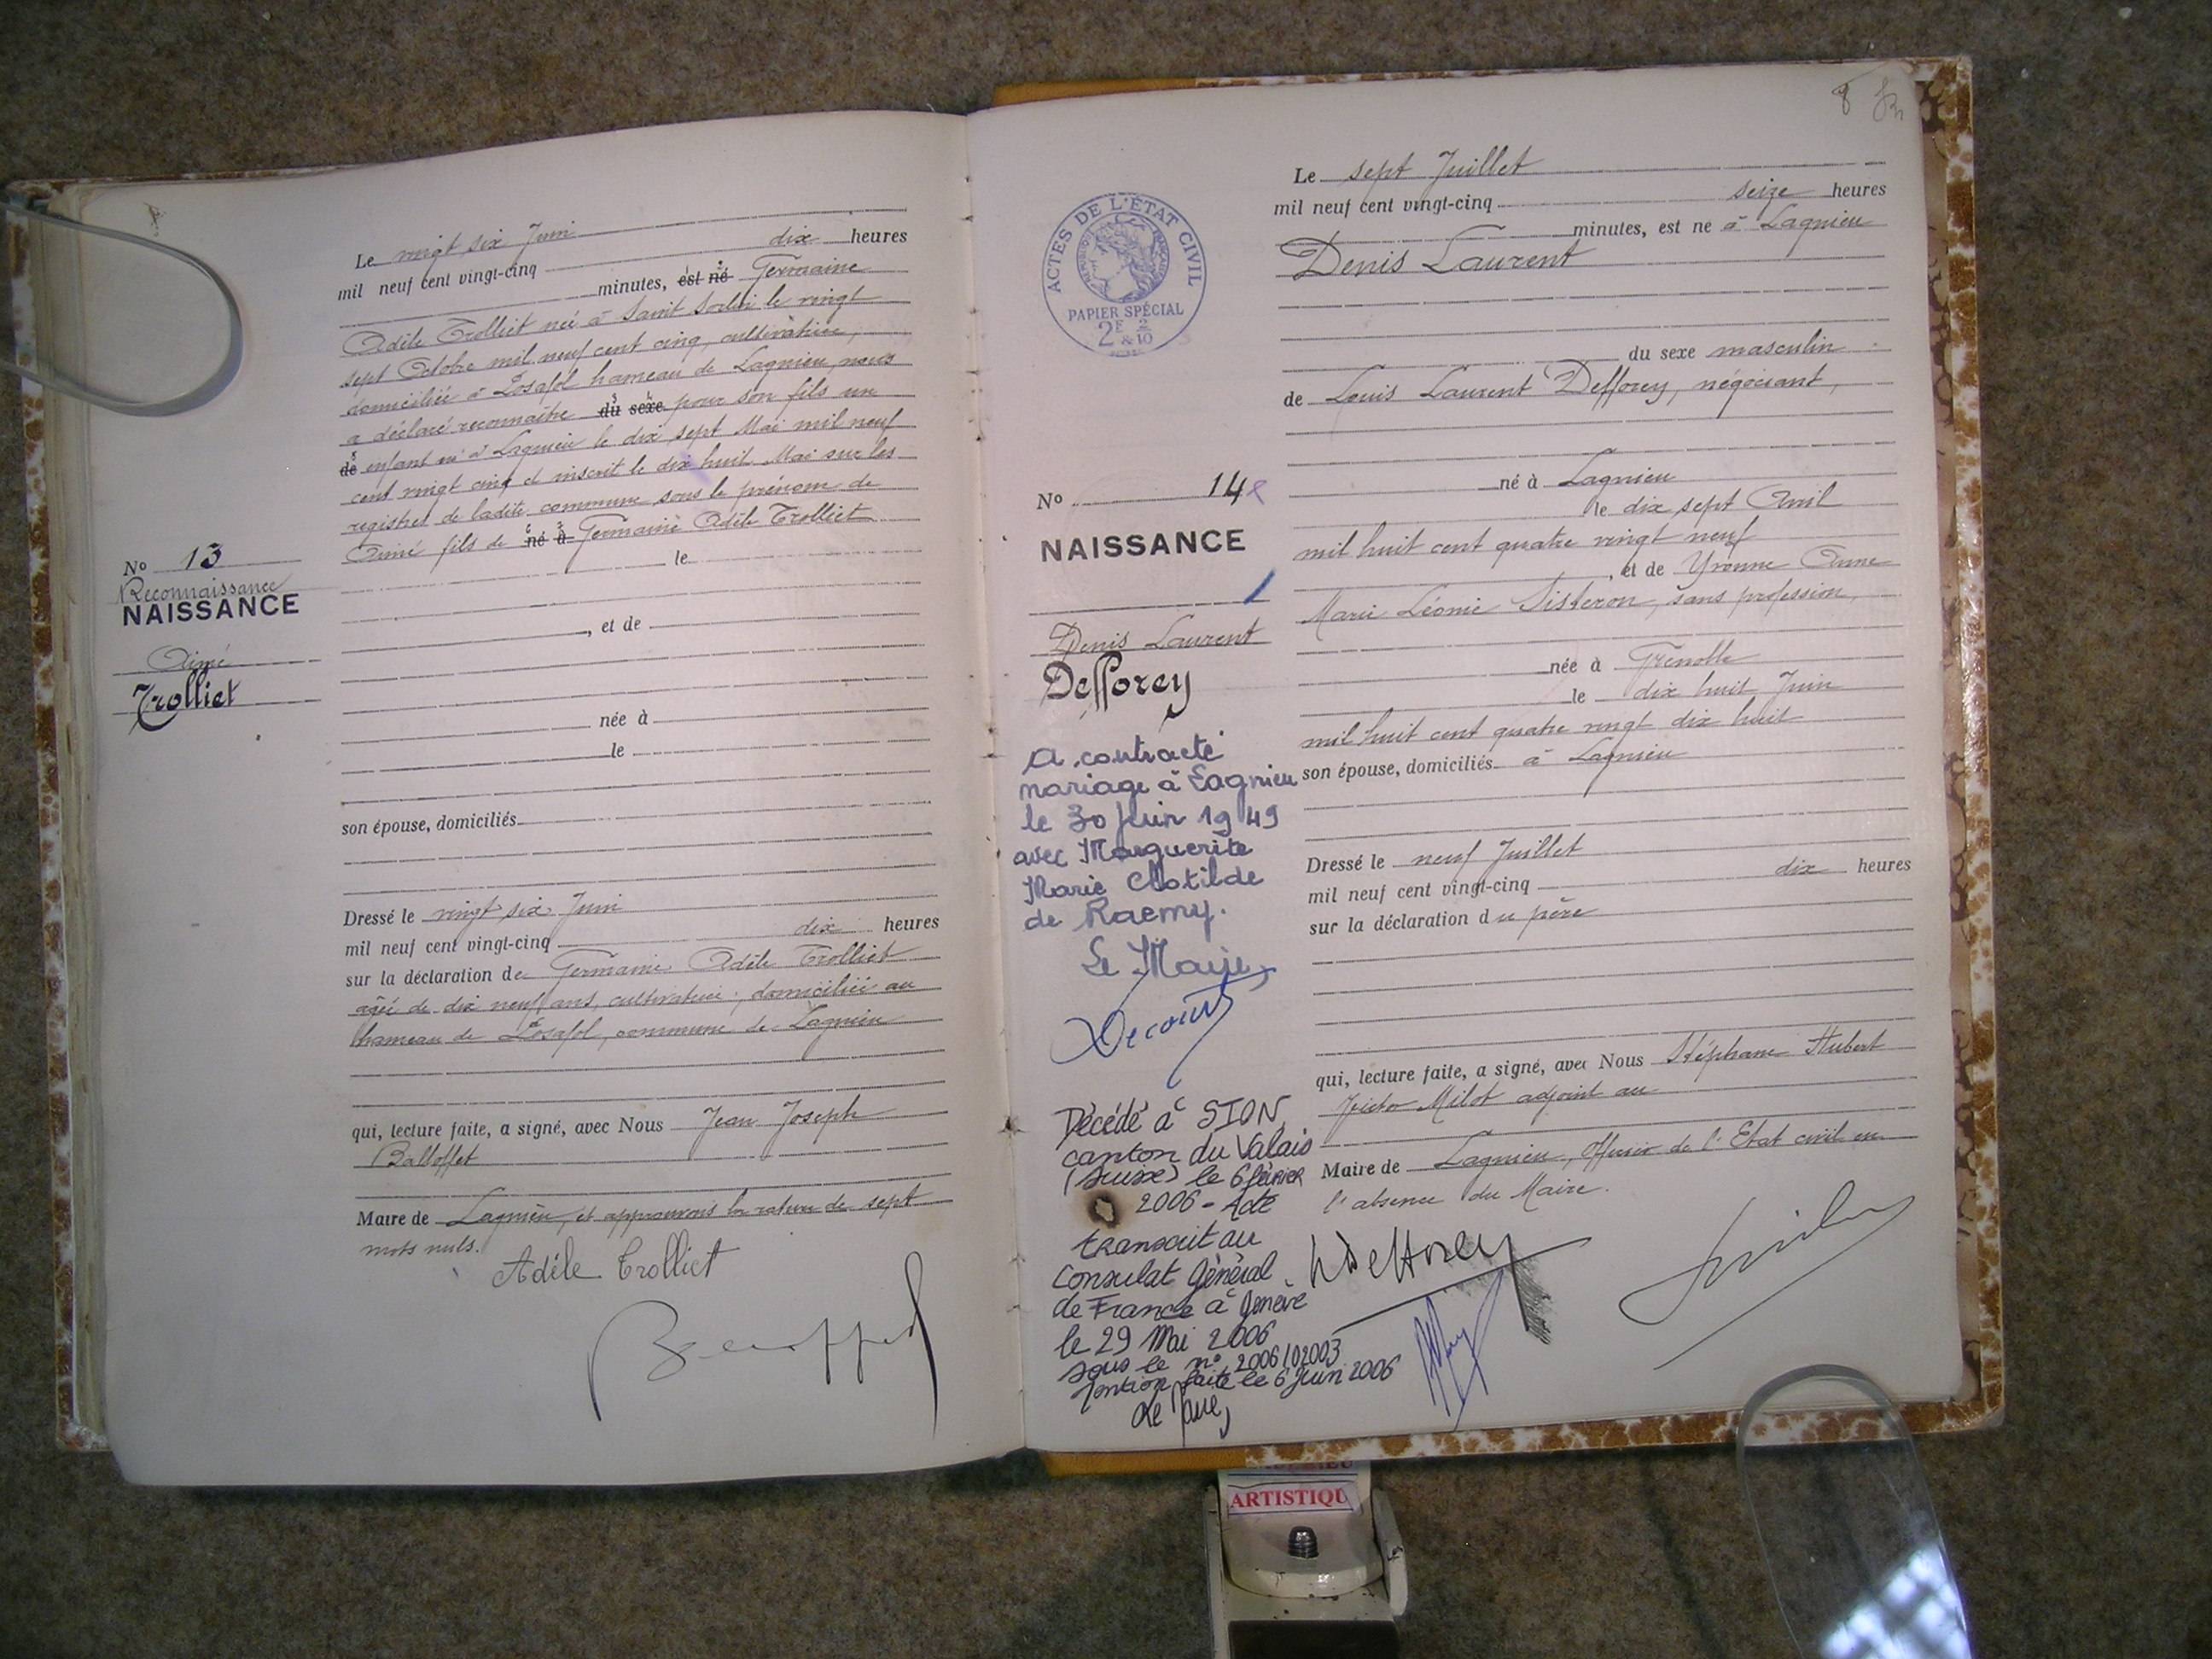 Le vingt six Juin
mil neuf cent vingt-cinq dix heures
minutes, est né Germaine
Adèle Trolliet née à Saint Sorlin le vingt
sept Octobre mil neuf cent cinq, cultivatrice,
domiciliée à Posafol hameau de Lagnieu, nous
a déclaré reconnaître du sexe pour son fils un
de enfant né à Lagnieu le dix sept Mai mil neuf
cent vingt cinq et inscrit le dix huit Mai sur les
registres de ladite commune sous le prénom de
Aimé fils de né à Germaine Adèle Trolliet
le
, et de
née à
le
son épouse, domiciliés
Dressé le vingt six Juin
mil neuf cent vingt-cinq dix heures
sur la déclaration de Germaine Adèle Trolliet
agée de dix neuf ans, cultivatrice, domiciliée au
hameau de Posafol, commune de Lagnieu
qui, lecture faite, a signé, avec Nous Jean Joseph
Balloffet
Maire de Lagnieu, et approuvons la rature de sept
mots nuls.
Adèle Trolliet
No 13
Reconnaissance
NAISSANCE
Aimé
Trolliet
8
ACTES DE L'ÉTAT CIVIL
RÉPUBLIQUE FRANÇAISE
PAPIER SPÉCIAL
2F & 2/10
No 14
NAISSANCE
Denis Laurent
Defforey
A contracté
mariage à Lagnieu
le 30 Juin 1949
avec Marguerite
Marie Clotilde
de Raemy.
Le Maire,
Décédé à SION,
canton du Valais
(Suisse) le 6 février
2006 - Acte
transcrit au
Consulat Général
de France à Genève
le 29 Mai 2006
sous le n° 2006/02003
Mention faite le 6 Juin 2006
Le Maire,
Le sept Juillet
mil neuf cent vingt-cinq seize heures
minutes, est né à Lagnieu
Denis Laurent
du sexe masculin
de Louis Laurent Defforey, négociant,
né à Lagnieu
le dix sept Avril
mil huit cent quatre vingt neuf
, et de Yvonne Anne
Marie Léonie Sisteron, sans profession,
née à Grenoble
le dix huit Juin
mil huit cent quatre vingt dix huit
son épouse, domiciliés à Lagnieu
Dressé le neuf Juillet
mil neuf cent vingt-cinq dix heures
sur la déclaration du père
qui, lecture faite, a signé, avec Nous Stéphane Hubert
Victor Milot adjoint au
Maire de Lagnieu, Officier de l'Etat civil en
l'absence du Maire.
LDefforey
ARTISTIQU